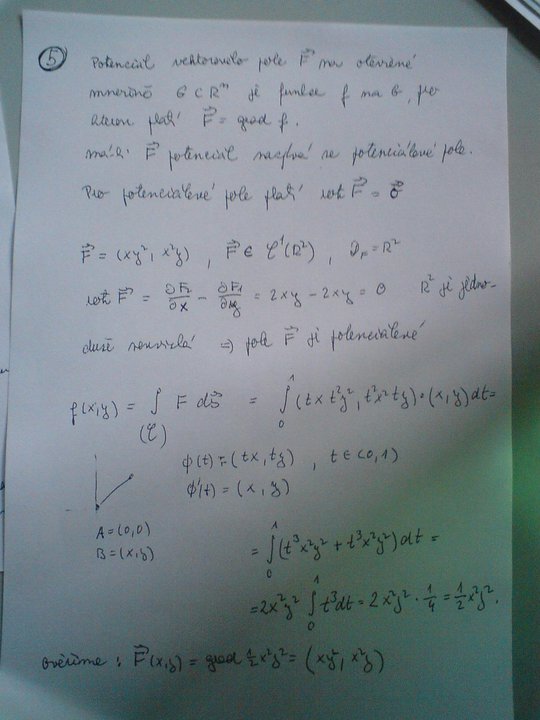 5 Potenciál vektorového pole F⃗ na otevřené
množině G ⊂ Rⁿ je funkce f na G, pro
kterou platí F⃗ = grad f.
má-li F⃗ potenciál nazývá se potenciálové pole.
Pro potenciálové pole platí rot F⃗ = 0⃗
F⃗ = (xy², x²y) , F⃗ ∈ C¹(R²) , D_F = R²
rot F⃗ = ∂F₂/∂x − ∂F₁/∂y = 2xy − 2xy = 0 R² je jedno-
duše souvislá ⇒ pole F⃗ je potenciálové
f(x,y) = ∫_(C) F dS⃗ = ∫₀¹ (tx t²y², t²x² ty)·(x,y)dt =
ϕ(t) = (tx, ty) , t ∈ <0,1>
ϕ'(t) = (x, y)
A = (0,0)
B = (x,y)
= ∫₀¹ (t³x²y² + t³x²y²)dt =
= 2x²y² ∫₀¹ t³dt = 2x²y² · 1/4 = 1/2 x²y².
ověříme : F⃗(x,y) = grad 1/2 x²y² = (xy², x²y)